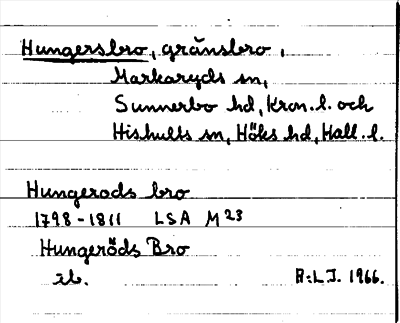 Hungersbro, gränsbro,
Markaryds sn,
Sunnerbo hd, Kron. l. och
Hishults sn, Höks hd, Hall. l.
Hungerods bro
1798-1811 LSA M 23
Hungeröds Bro
ib. R:LJ. 1966.